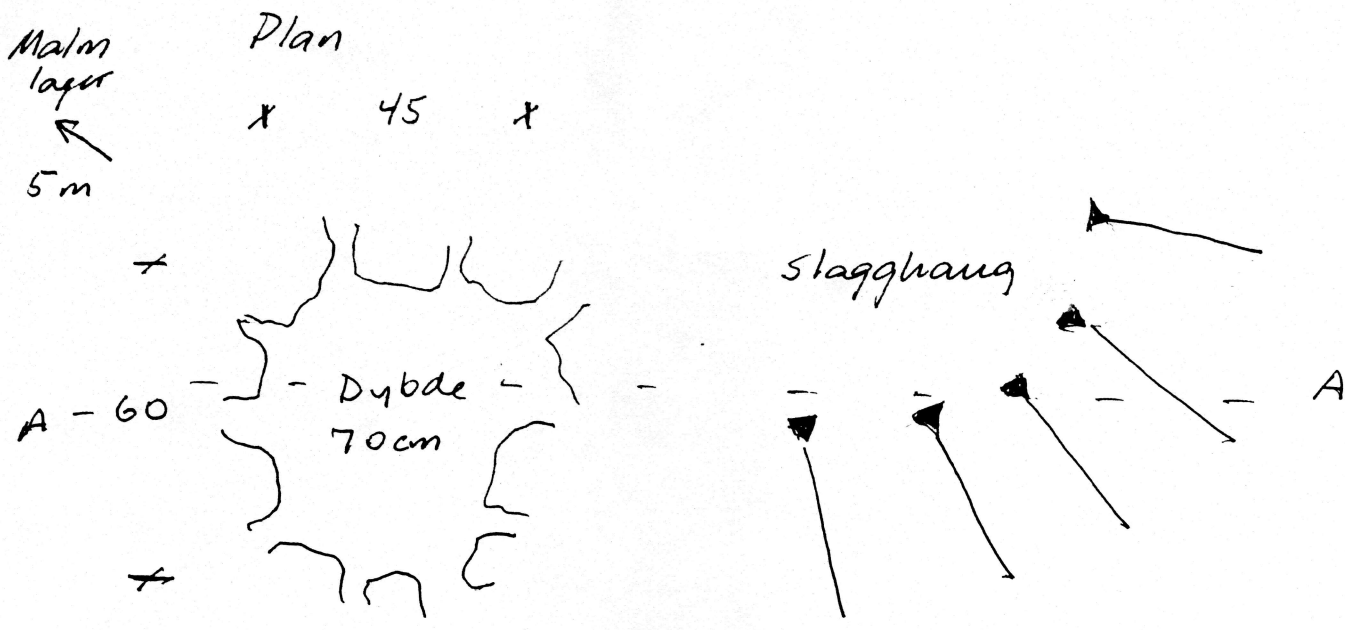 Malm
lager
5 m
Plan
x 45 x
slagghaug
A - 60
Dybde
70 cm
A